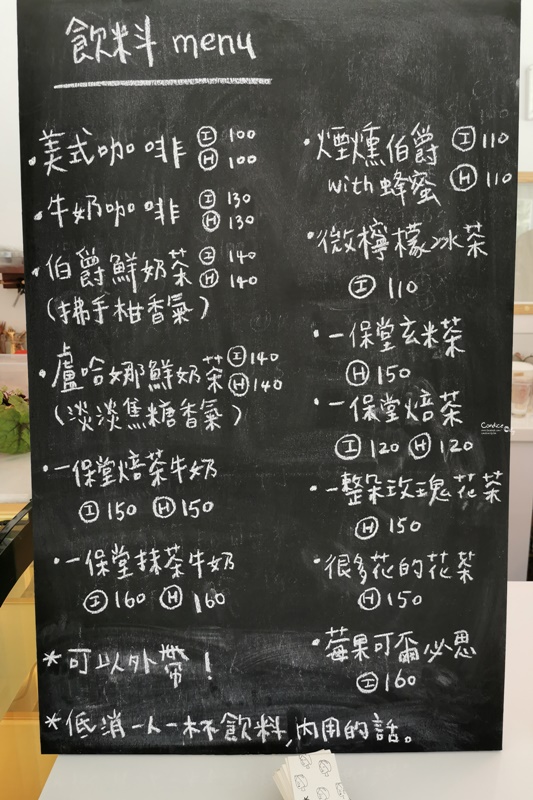 飲料 menu
・美式咖啡 Ⓘ 100
Ⓗ 100
・牛奶咖啡 Ⓘ 130
Ⓗ 130
・伯爵鮮奶茶 Ⓘ 140
Ⓗ 140
(拂手柑香氣)
・盧哈娜鮮奶茶 Ⓘ 140
Ⓗ 140
(淡淡焦糖香氣)
・一保堂焙茶牛奶
Ⓘ 150 Ⓗ 150
・一保堂抹茶牛奶
Ⓘ 160 Ⓗ 160
・煙燻伯爵 Ⓘ 110
with 蜂蜜 Ⓗ 110
・微檸檬冰茶
Ⓘ 110
・一保堂玄米茶
Ⓗ 150
・一保堂焙茶
Ⓘ 120 Ⓗ 120
・一整朵玫瑰花茶
Ⓗ 150
・很多花的花茶
Ⓗ 150
・莓果可爾必思
Ⓘ 160
*可以外帶!
*低消一人一杯飲料,內用的話。
Candice